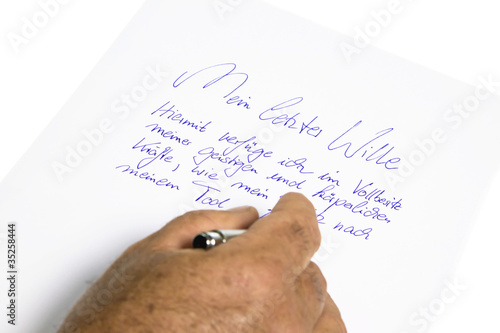 Mein letzter Wille
Hiermit verfüge ich im Vollbesitz
meiner geistigen und körperlichen
Kräfte, wie mein nach
meinem Tod
#35258444